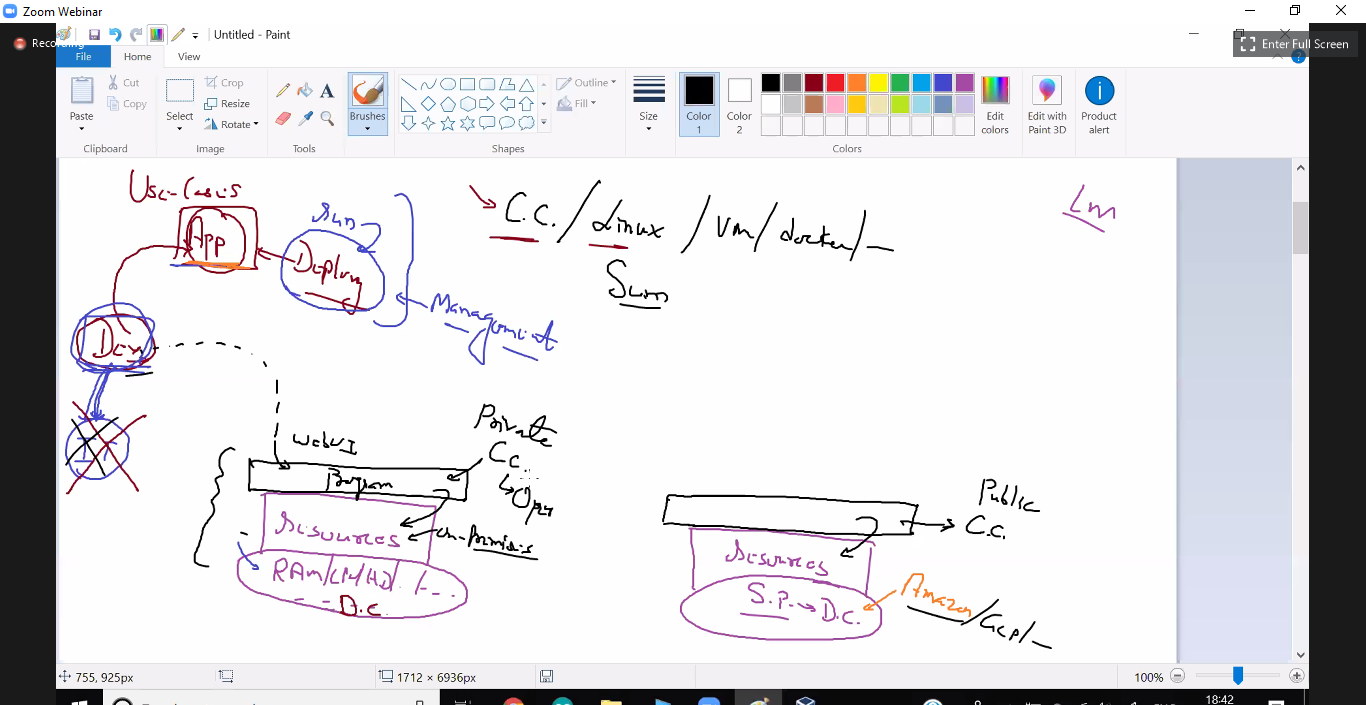 Zoom Webinar
Recording
Untitled - Paint
Enter Full Screen
File
Home
View
Paste
Cut
Copy
Clipboard
Select
Crop
Resize
Rotate
Image
Tools
Brushes
Shapes
Outline
Fill
Size
Color 1
Color 2
Colors
Edit colors
Edit with Paint 3D
Product alert
Use-Cases
App
run
Deploy
Management
C.C. / Linux / Vm / docker / -
Lm
Dev
WebUI
Program
Private
C.C.
resources
on-Premises
RAM/CPU/HD/---
D.C.
Public
C.C.
resources
S.P. → D.C.
Amazon/GCP/-
755, 925px
1712 × 6936px
100%
18:42